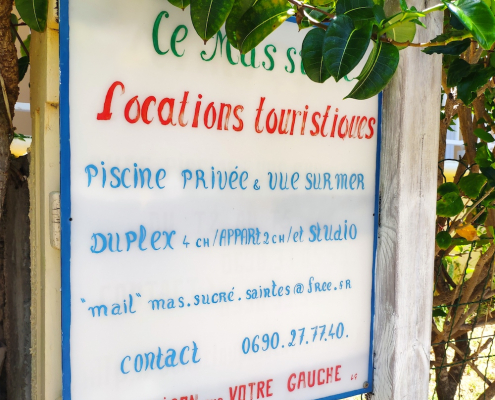 Ce Mas s
Locations touristiques
Piscine Privée & vue sur mer
Duplex 4 ch/APPart 2 ch/et Studio
"mail" mas.sucré.saintes@free.fr
contact 0690.27.77.40.
VOTRE GAUCHE